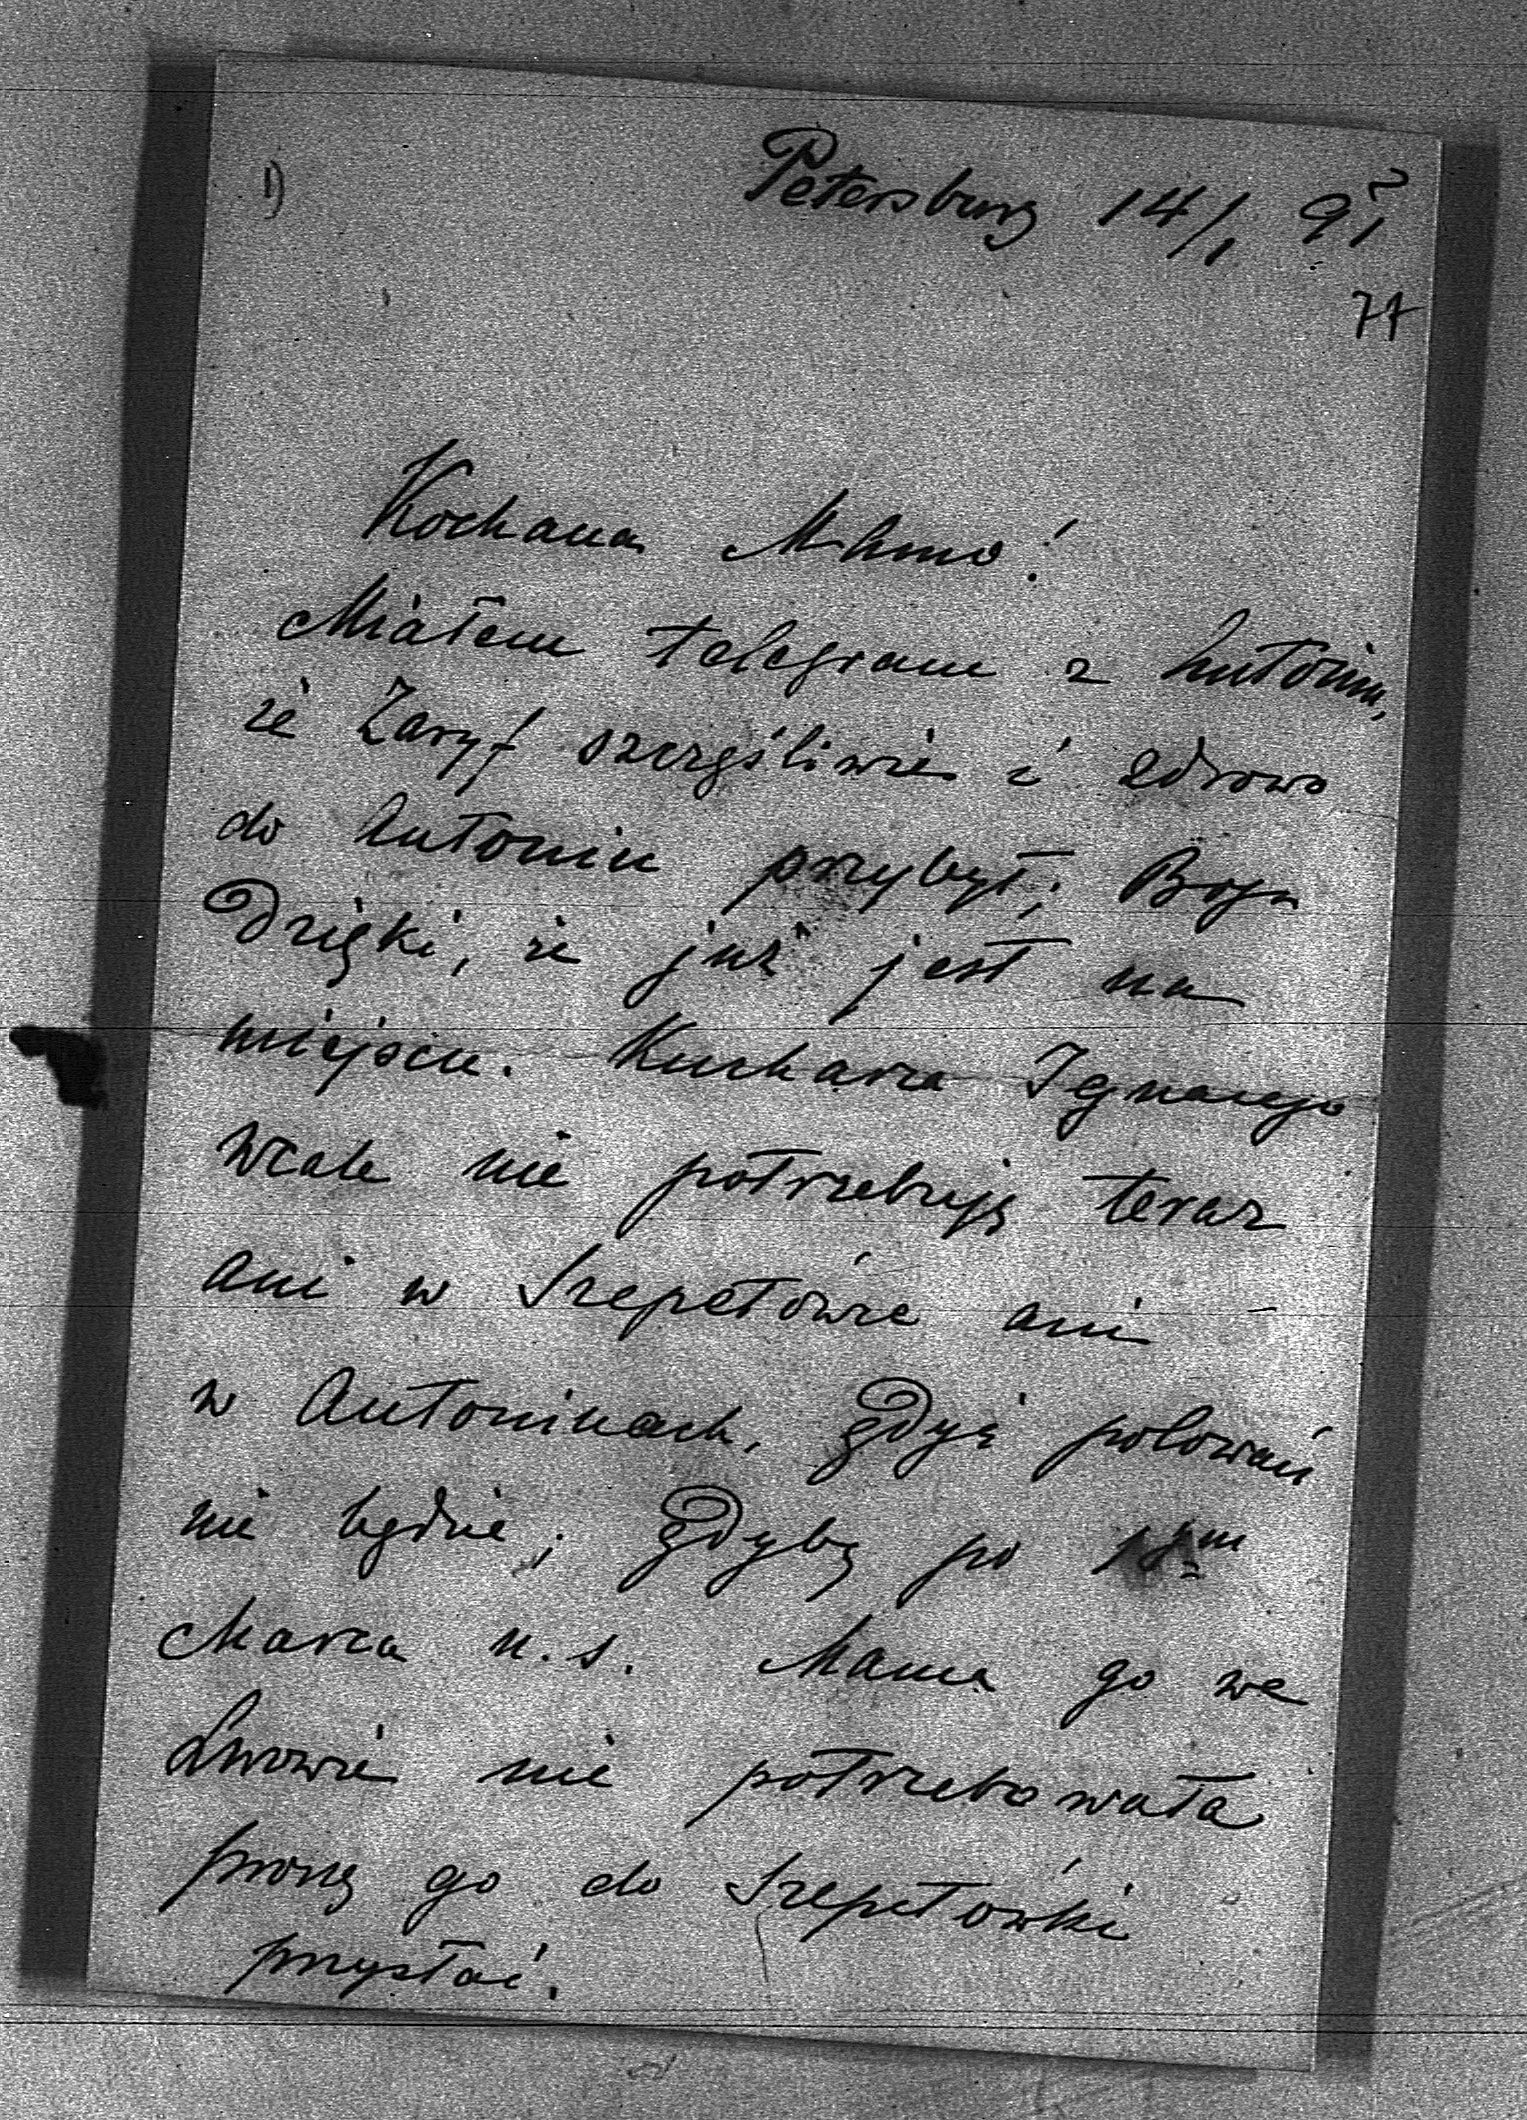 1)
Petersburg 14/1 91
77
Kochana Mamo!
Miałem telegram z Antonin,
że Zaryf szczęśliwie i zdrowo
do Antonin przybył; Bogu
Dzięki, że już jest na
miejscu. Kucharza Ignacego
wcale nie potrzebuję teraz
ani w Szepetówce ani
w Antoninach, gdyż polowań
nie będzie; gdyby po
Marca n.s. Mama go we
Lwowie nie potrzebowała
proszę go do Szepetówki
przysłać.